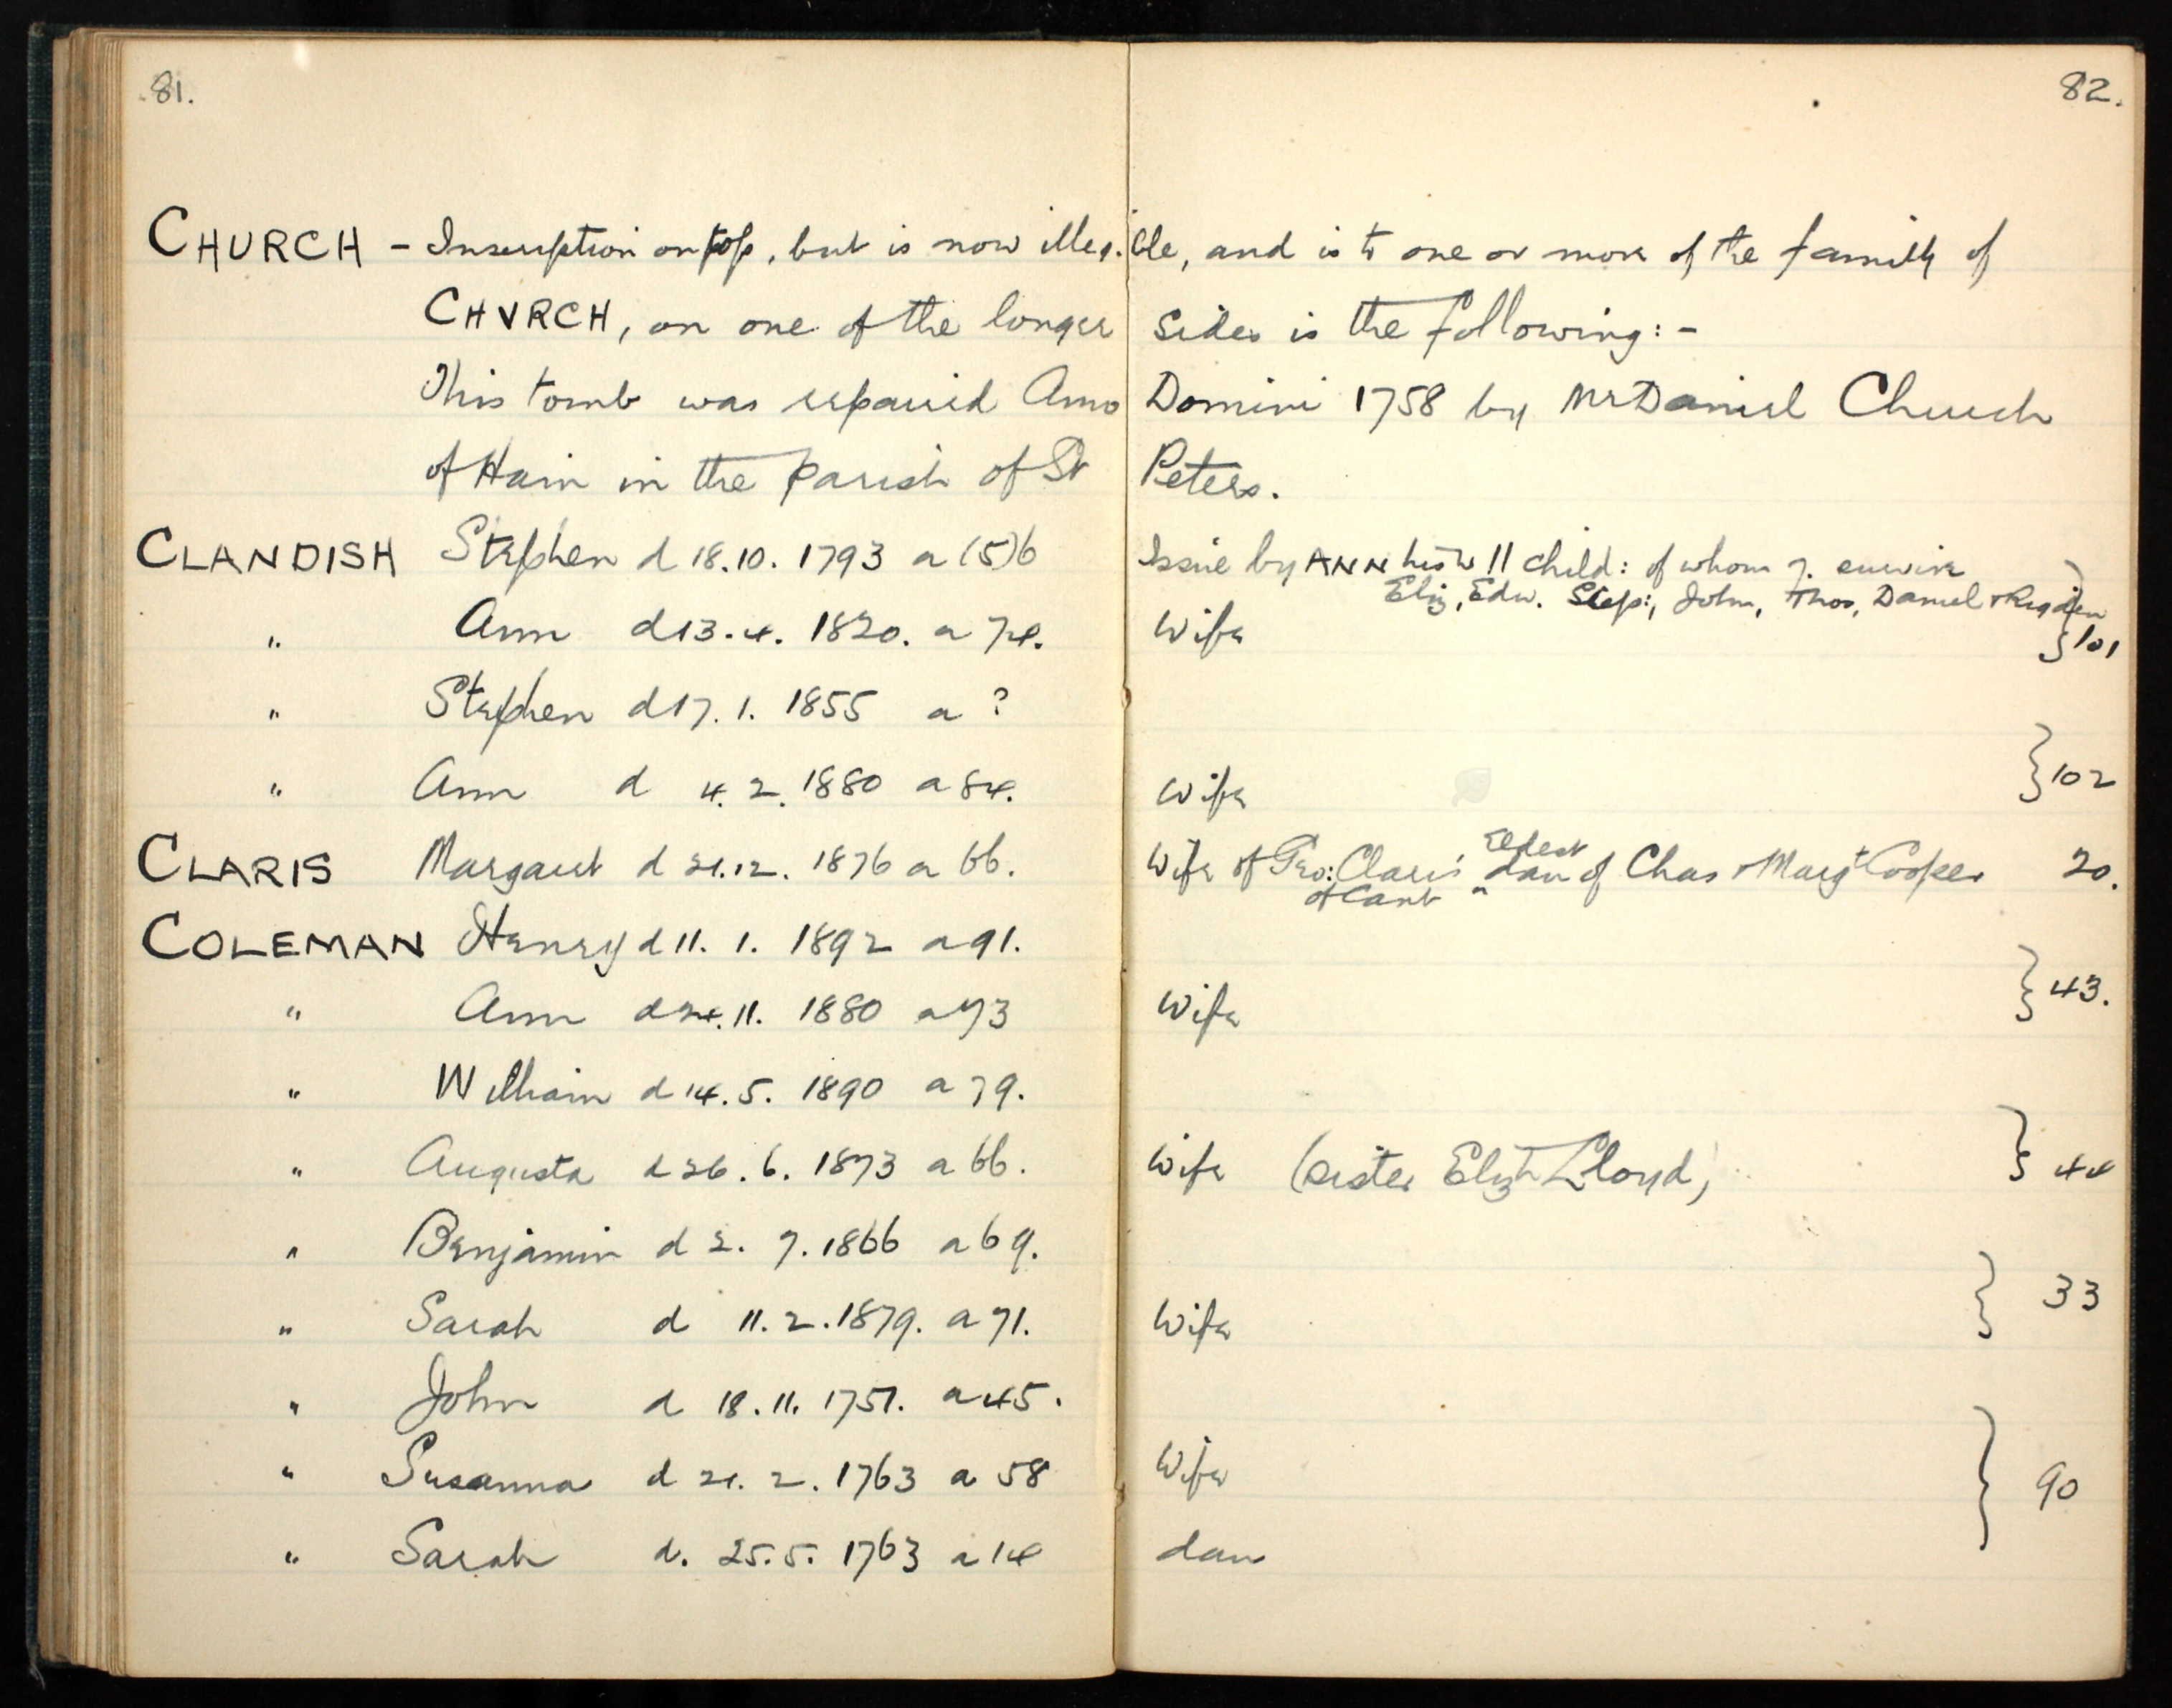 81.
82.
CHURCH - Inscription on top, but is now illegible, and is to one or more of the family of
CHVRCH, on one of the longer sides is the following: -
This tomb was repaired Anno Domini 1758 by Mr Daniel Church
of Hain in the parish of St Peters.
CLANDISH Stephen d 18.10. 1793 a (5)6 Issue by ANN his w 11 child: of whom 7. survive
Eliz, Edw. Step:, John, Thos, Daniel + Rigden
" Ann d 13.4. 1820. a 74. Wife } 101
" Stephen d 17.1. 1855 a ?
" Ann d 4.2. 1880 a 84. Wife } 102
CLARIS Margaret d 21.12. 1876 a 66. Wife of Geo: Claris of Cant eldest dau of Chas + Margt Cooper 20.
COLEMAN Henry d 11. 1. 1892 a 91.
" Ann d 24.11. 1880 a 73 Wife } 43.
" William d 14.5. 1890 a 79.
" Augusta d 26.6. 1873 a 66. Wife (sister Elizth Lloyd) } 44
" Benjamin d 2. 7. 1866 a 69.
" Sarah d 11.2.1879. a 71. Wife } 33
" John d 18.11. 1751. a 45.
" Susanna d 21. 2. 1763 a 58 Wife } 90
" Sarah d. 25.5. 1763 a 14 dau